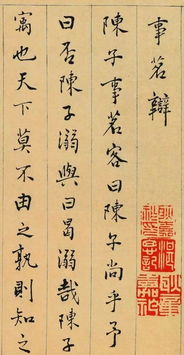 事茗辯
陳子事茗客曰陳子尚乎予
曰否陳子溺與曰曷溺哉陳子
寓也天下莫不由之孰則知之